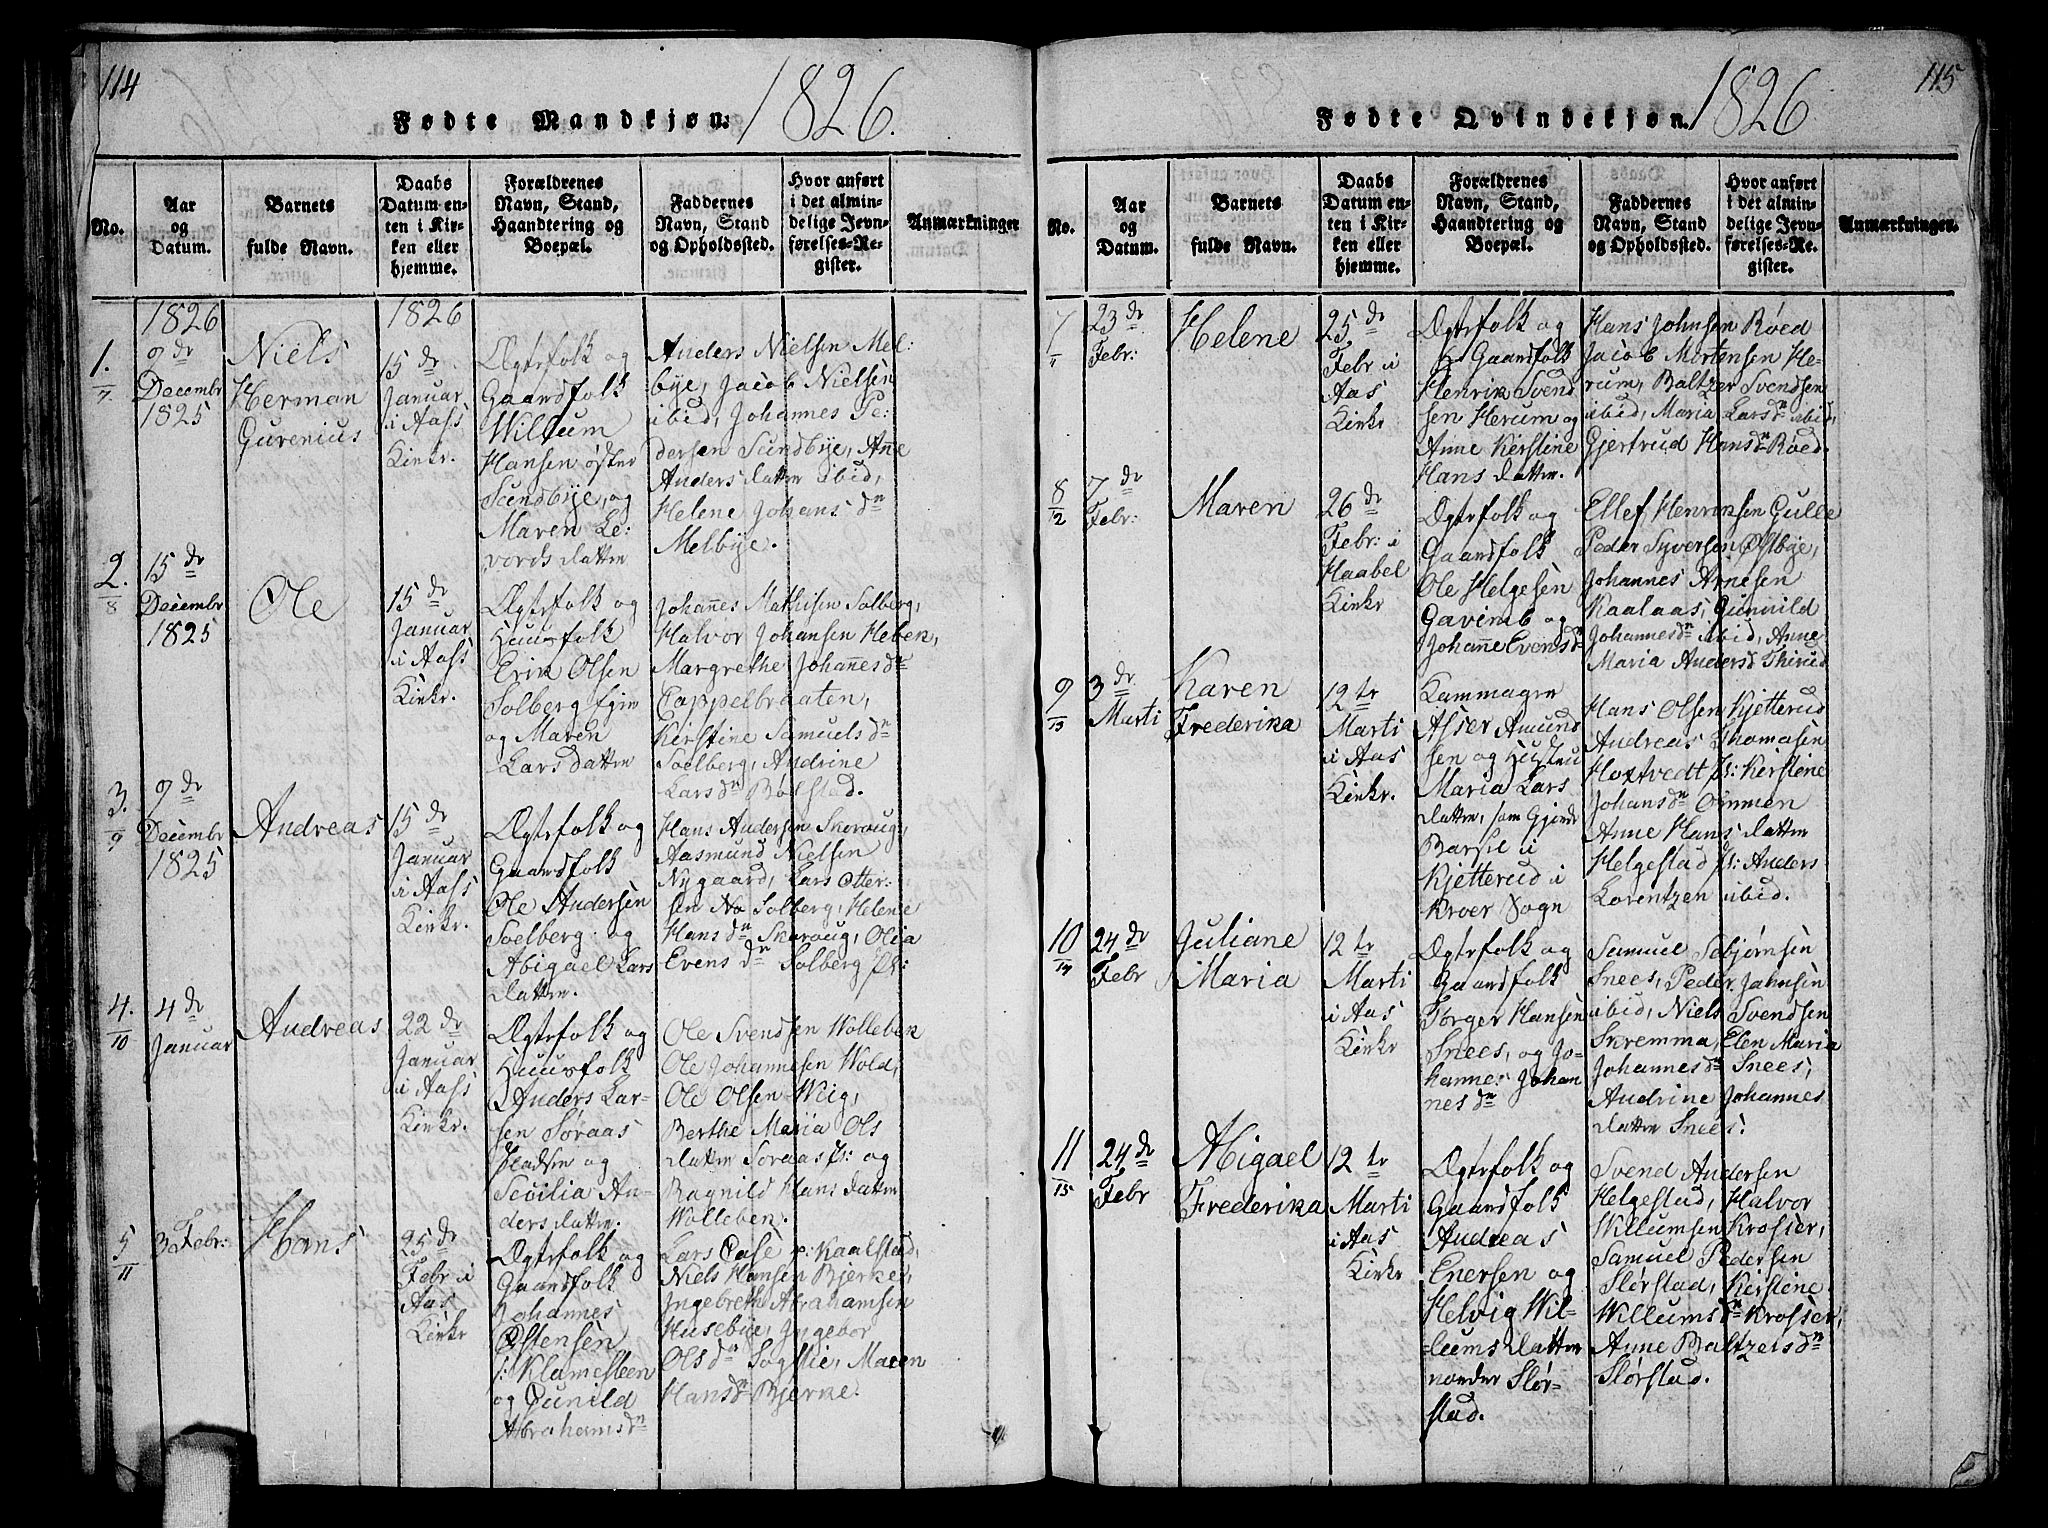 114
Fødte Mandkjøn. 1826.
No.
Aar og Datum.
Barnets fulde Navn.
Daabs Datum enten i Kirken eller hjemme.
Forældrenes Navn, Stand, Haandtering og Boepæl.
Faddernes Navn, Stand og Opholdssted.
Hvor anført i det almindelige Jevnførelses-Register.
Anmærkninger
1.
7
1826
9de
Decembr
1825
Niels
Herman
Gurenius
1826
15 de
Januar
i Aass
Kirke.
Ægtefolk og
Gaardfolk
Willum
Hansen øster
Sundbye, og
Maren Le-
vords datter
Anders Nielsen Mel:
bye, Jacob Nielsen
ibid, Johannes Pe-
dersen Sundbye, Anne
Anders datter ibid,
Helene Johans dr
Melbye.
2.
8
15 de
Decembr
1825
Ole
15 de
Januar
i Aass
Kirke.
Ægtefolk og
Huusfolk
Erik Olsen
Solberg Ejer
og Maren
Larsdatter
Johannes Mathisen Solberg,
Halvor Johansen Heben,
Margrethe Johannesdr
Cappelbraaten,
Kirstine Samuelsdr
Soelberg, Andrine
Larsdr Bølstad.
3.
9
9 de
Decembr
1825
Andreas
15 de
Januar
i Aass
Kirke.
Ægtefolk og
Gaardfolk
Ole Andersen
Soelberg og
Abigael Lars
datter.
Hans Andersen Skoroug,
Aasmund Nielsen
Nygaard, Lars Otter:
sen No Solberg, Helene
Hans dr Skoroug, Olia
Evens dr Solberg Ps:
4.
10
4 de
Januar
Andreas
22 de
Januar
i Aass
Kirke.
Ægtefolk og
Huusfolk
Anders Lar-
sen Søraas
Pladsen og
Sevilia An-
ders datter.
Ole Svendsen Wolleben
Ole Johannesen Wold,
Ole Olsen Wiig,
Berthe Maria Ols
datter Søraas Ps: og
Ragnild Hans datter
Wolleben.
5
11
3 Febr:
Hans
25 de
Febr i
Aas
Kirke
Ægtefolk og
Gaardfolk
Johannes
Østensen
s: Klamesteen
og Gunild
Abrahamsdr
Lars Aase p: Kaalstad,
Niels Hansen Bjerke,
Ingebreth Abrahamsen
Husebye, Ingebor
Ols dr Sogstie, Maren
Hansdr Bjerke.
115
Fødte Qvindekjøn. 1826
No.
Aar og Datum.
Barnets fulde Navn.
Daabs Datum enten i Kirken eller hjemme.
Forældrenes Navn, Stand, Haandtering og Boepæl.
Faddernes Navn, Stand og Opholdssted.
Hvor anført i det almindelige Jevnførelses-Register.
Anmærkninger.
7
11
23 de
Febr:
Helene
25 de
Febr i
Aas
Kirke
Ægtefolk og
Gaardfolk
Henrik Svend
sen Herum og
Anne Kirstine
Hans datter.
Hans Johnsen Røed
Jacob Mortensen He-
rum, Baltzer Svendsen
ibid, Maria Larsdr ibid,
Gjertrud Hansdr Røed.
8
12
7 de
Febr:
Maren
26 de
Febr: i
Haabel
Kirke
Ægtefolk og
Gaardfolk
Ole Helgesen
Gavimb og
Johanne Evensd
Ellef Henriksen Gulle
Peder Syversen Østbye,
Johannes Arnesen
Kaalaas, Gunnild
Johannesdr ibid, Anne
Maria Andersd Thirud
9
13
3 de
Marti
Karen
Frederika
12 te
Marti
i Aas
Kirke.
Kammager
Asser Amund
sen og Hustru
Maria Lars
datter, som Gjorde
Barsel i
Kjetterud i
Kroer Sogn
Hans Olsen Kjetterud
Andreas Thomasen
Hoxtvedt Ps: Kirstine
Johansdr Ommen
Anne Hans datter
Helgestad Ps: Anders
Lorentzen ibid.
10
14
24 de
Febr
Juliane
Maria
12 te
Marti
i Aas
Kirke
Ægtefolk og
Gaardfolk
Torger Hansen
Snees, og Jo-
hannes Johan
nes dr
Samuel Sebjørnsen
Snees, Peder Jahnsen
ibid, Niels Svendsen
Skremma, Elen Maria
Johannesdr Snees,
Andrine Johannes
datter Snees.
11
15
24 de
Febr
Abigael
Frederika
12 te
Marti
i Aas
Kirke
Ægtefolk og
Gaardfolk
Andreas
Enersen og
Helvig Wil-
lums datter
nordre Stør-
stad.
Svend Andersen
Helgestad, Halvor
Willumsen Krosser,
Samuel Pedersen
Størstad, Kirstine
Willumsdr Krosser,
Anne Baltzersdr
Størstad.